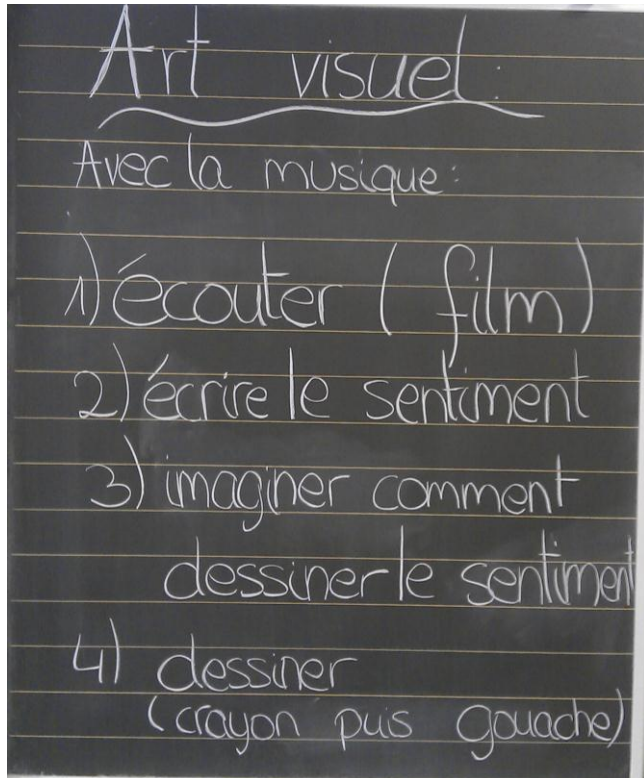 Art visuel:
Avec la musique:
1) écouter (film)
2) écrire le sentiment
3) imaginer comment
dessiner le sentiment
4) dessiner
(crayon puis gouache)